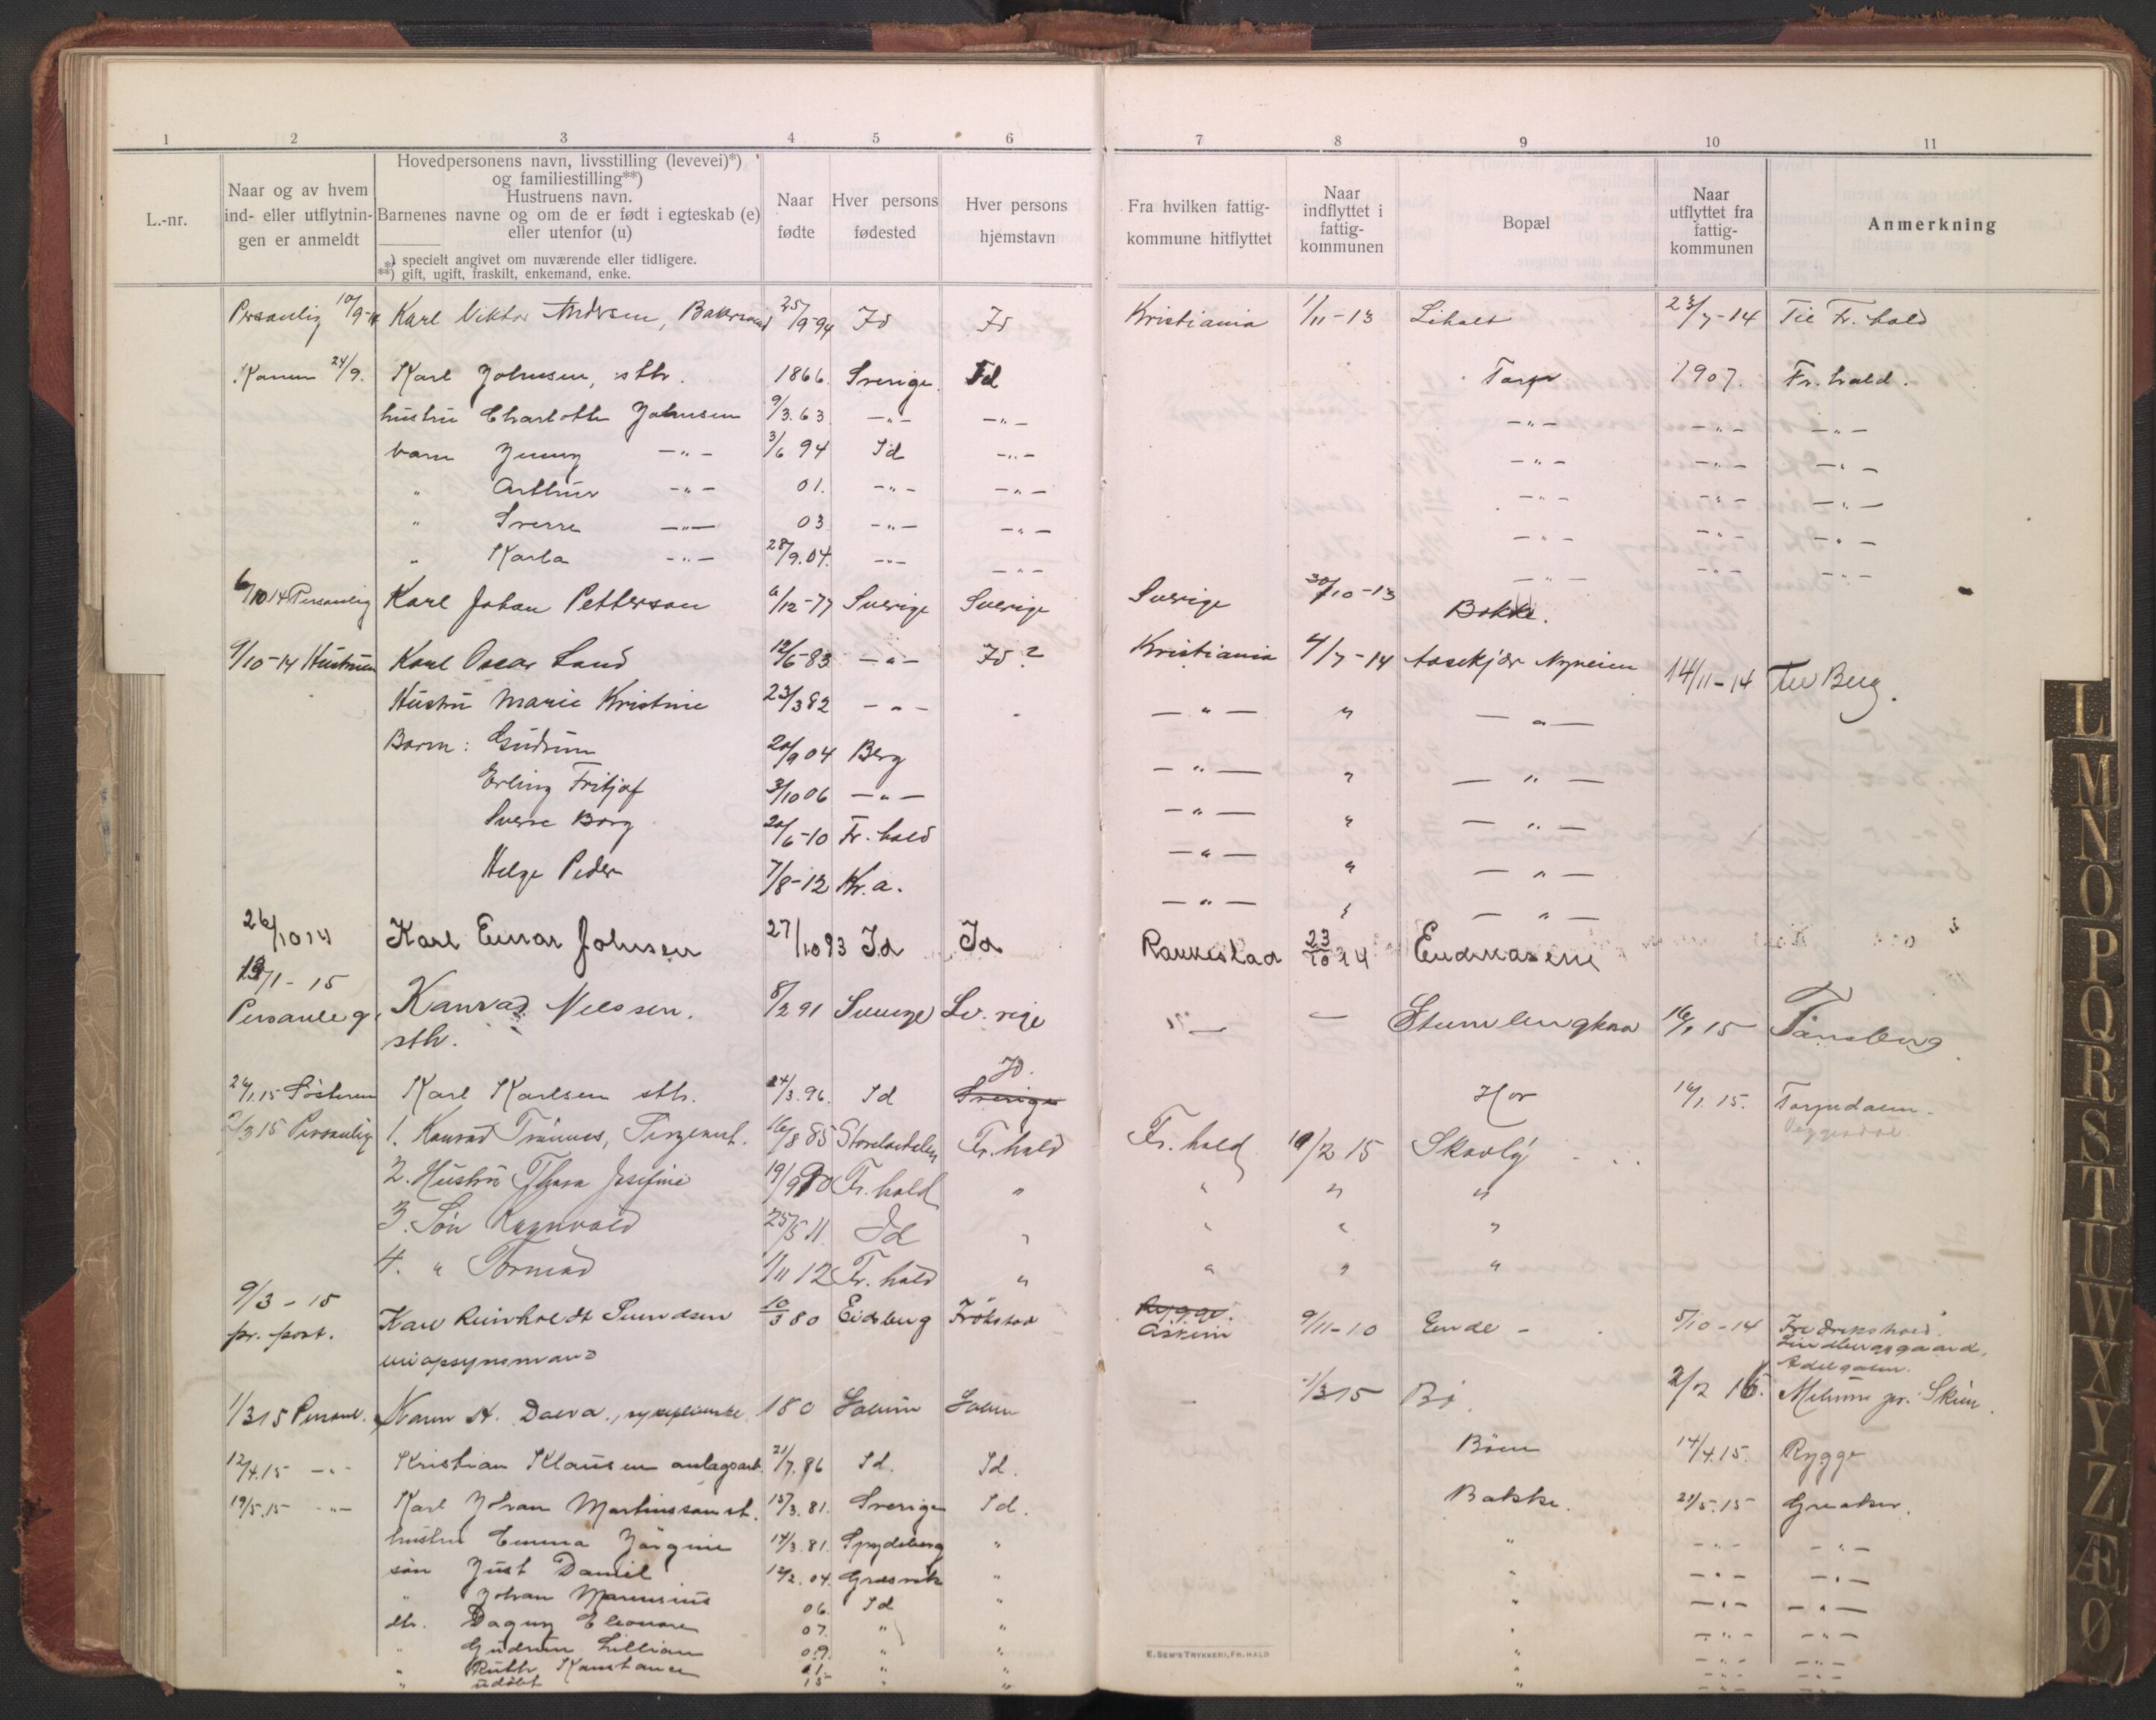 1 2 3 4 5 6 7 8 9 10 11
L.-nr.
Naar og av hvem
ind- eller utflytnin-
gen er anmeldt
Hovedpersonens navn, livsstilling (levevei)*)
og familiestilling**)
Hustruens navn.
Barnenes navne og om de er født i egteskab (e)
eller utenfor (u)
*) specielt angivet om nuværende eller tidligere.
**) gift, ugift, fraskilt, enkemand, enke.
Naar
fødte
Hver persons
fødested
Hver persons
hjemstavn
Fra hvilken fattig-
kommune hitflyttet
Naar
indflyttet i
fattig-
kommunen
Bopæl
Naar
utflyttet fra
fattig-
kommunen
Anmerkning
Personlig 10/9-14 Karl Viktor Andersen, 25/9-94 Id Id Kristiania 1/11-13 Liholt 23/7-14 Til Fr.hald
24/9. Karl Johnsen, sth. 1866. Sverige Id Torp 1907. Fr.hald.
hustru Charlotte Johnsen 9/3.63 -"- -"- -"- -"- -"-
barn Jenny -"- 3/6 94 Id -"- -"- -"- -"-
" Arthur -"- 01. -"- -"- -"- -"- -"-
" Sverre -"- 03 -"- -"- -"- -"- -"-
" Karla -"- 28/9.04. -"- -"- -"- -"- -"-
6/10 14 Personlig Karl Johan Petterson 6/12-77 Sverige Sverige Sverige 30/10-13 Bakke.
9/10-14 Hustruen Karl Oscar Lund 12/6-83 -"- Id? Kristiania 4/7-14 Aasekjær Nyveien 14/11-14 Til Berg.
Hustru Marie Kristine 23/3 82 -"- -"- " -"-
Barn: Gudrun 20/9 04 Berg -"- " -"-
Erling Fritjof 3/10 06 -"- -"- " -"-
Sverre Borg 20/6-10 Fr.hald -"- " -"-
Helge Peder 7/8-12 Kr.a. -"- " -"-
26/10 14 Karl Einar Johnsen 27/10 93 Id Id Rakkestad 23/10 14
19/1-15
Personlig Konrad Nilssen. 8/2 91 Sverige Sv.rige - - 16/1 15 Tønsberg.
sth.
Id.
26/1.15 Søsteren Karl Karlsen sth. 24/3.96. Id Sverige Hov 16/1.15. Torpedalen.
2/3 15 Personlig 1. Konrad Trømnes, Sergeant. 16/8 85 Fr.hald Fr.hald 10/2 15 Skovly
2. Hustru Thora Josefine 19/9 90 Fr.hald " " " "
3. Søn Ragnvald 25/5 11 Id " " " "
4. " Tormod 1/11 12 Fr.hald " " " "
9/3-15
pr. post. Karl Reinholdt Svendsen 10/3 80 Eidsberg Askim 9/11-10 Ende - 5/10-14 Fredrikshald.
Rygge.
veiopsynsmand
1/3 15 Personl. 180 Solum Solum - 1/3 15 Bø. 2/2 16. Melum pr. Skien.
12/4.15 -"- Kristian Klausen anlægsarb. 21/7.86 Id. Id. Böen 14/4.15. Rygge
19/5.15 -"- Karl Johan Martinsson st. 15/3.81. Sverige Id. Bakke. 21/5.15 Greaker.
hustru Emma Jörgine 14/3.81. Spydeberg " " -"- -"-
søn Just Daniel 12/2.04. Græsvik " " -"- -"-
" Johan Marensius 06. Id " " -"- -"-
dtr. Dagny Eleonore 07. " " " -"- -"-
" Gudrun Lillian 09. " " " -"- -"-
" Ruth Konstance 11. " " " -"- -"-
" udøbt 15 " " " -"- -"-
E. SEM'S TRYKKERI, FR.HALD
L
M
N
O
P
Q
R
S
T
U
W
X
Y
Z
Æ
Ø